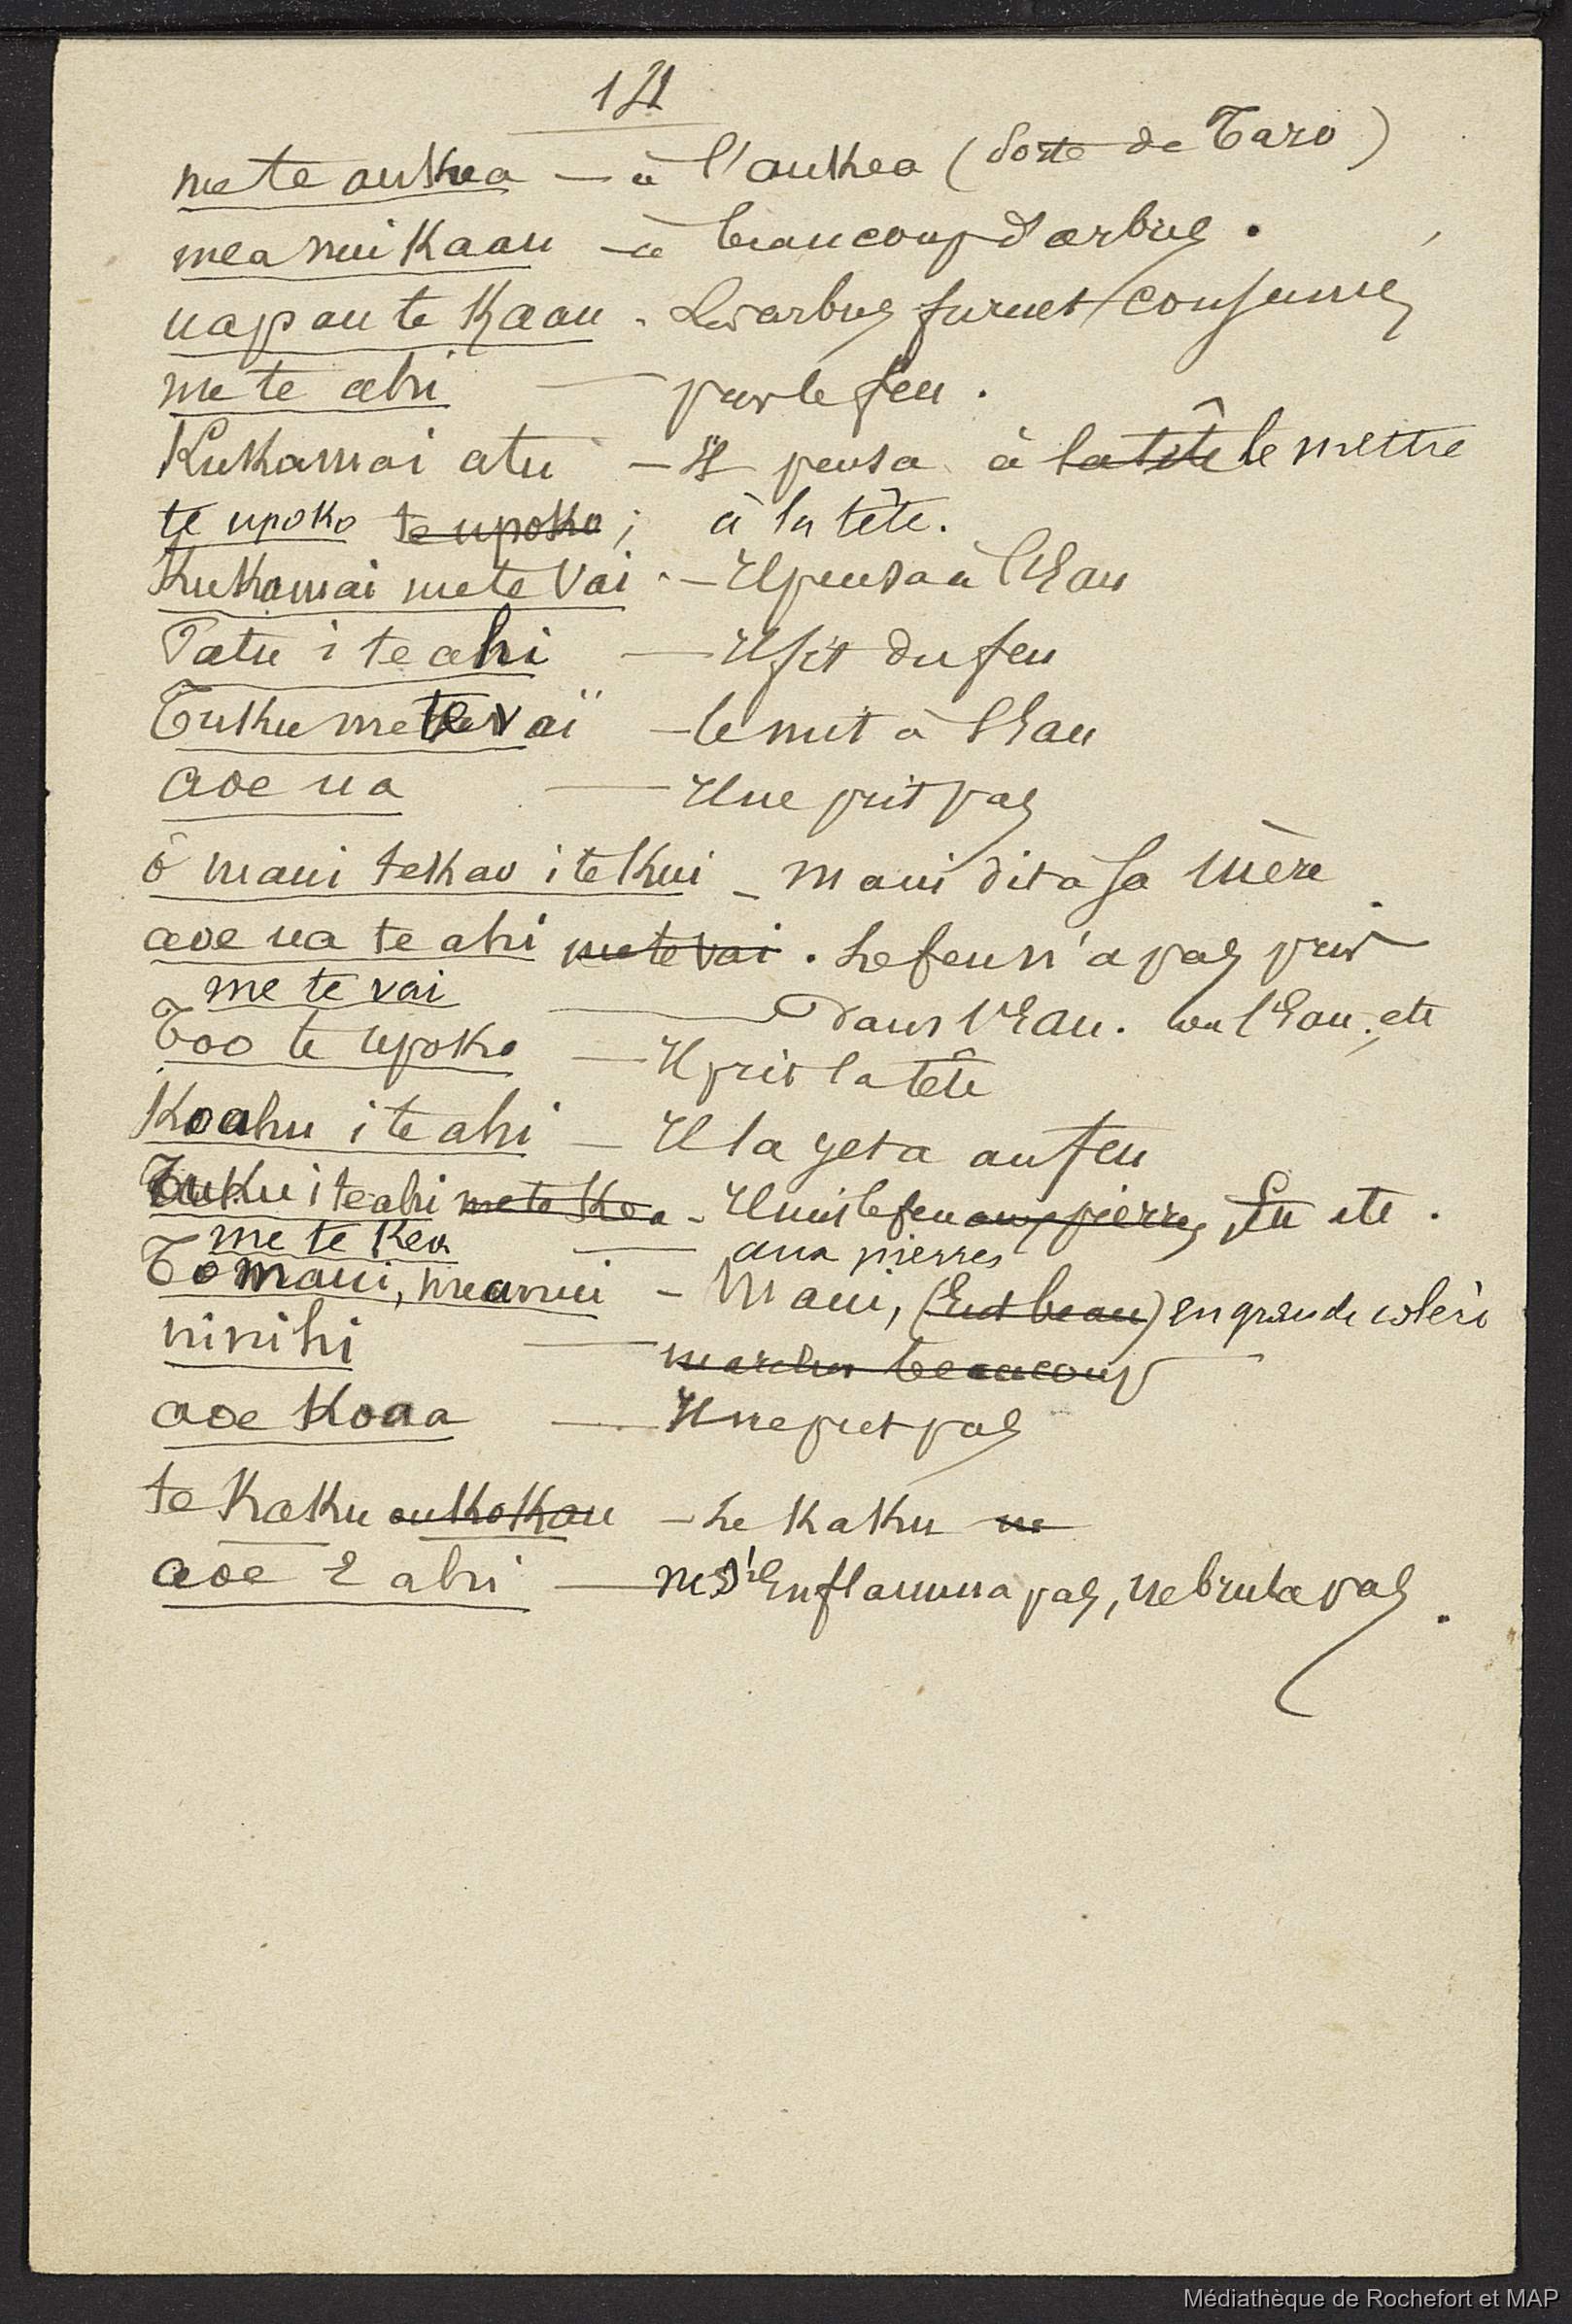 121
me te aukea — à l'aukea (sorte de Taro)
mea nui kaau — à beaucoup d'arbres.
ua pau te kaau - Les arbres furent consumés
me te ahi — par le feu.
Kukamai atu — Il pensa à la tête le mettre
te upoko te upoko; à la tête.
Kukamai me te vai - Il pensa à l'Eau
Patu i te ahi — Il fit du feu
Tuku me te vaï - le mit à l'Eau
aoe ua — Il ne prit pas
ô maui tekao i te kui - maui dit à sa mère
aoe ua te ahi me te vai . Le feu n'a pas pris
me te vai — dans l'Eau. l'Eau, etc
Too te upoko — Il prit la tête
Koahu i te ahi — Il la jeta au feu
Tuku i te ahi me te kea - Il mit le feu aux pierres etc.
me te kea — aux pierres
To maui, mea nui - Maui, (Est beau) en grande colère
ninihi — marcher beaucoup
aoe koaa — Il ne prit pas
te kaku oukokau - Le kaku ne
aoe e ahi — ne s'Enflamma pas, ne brula pas.
Médiathèque de Rochefort et MAP